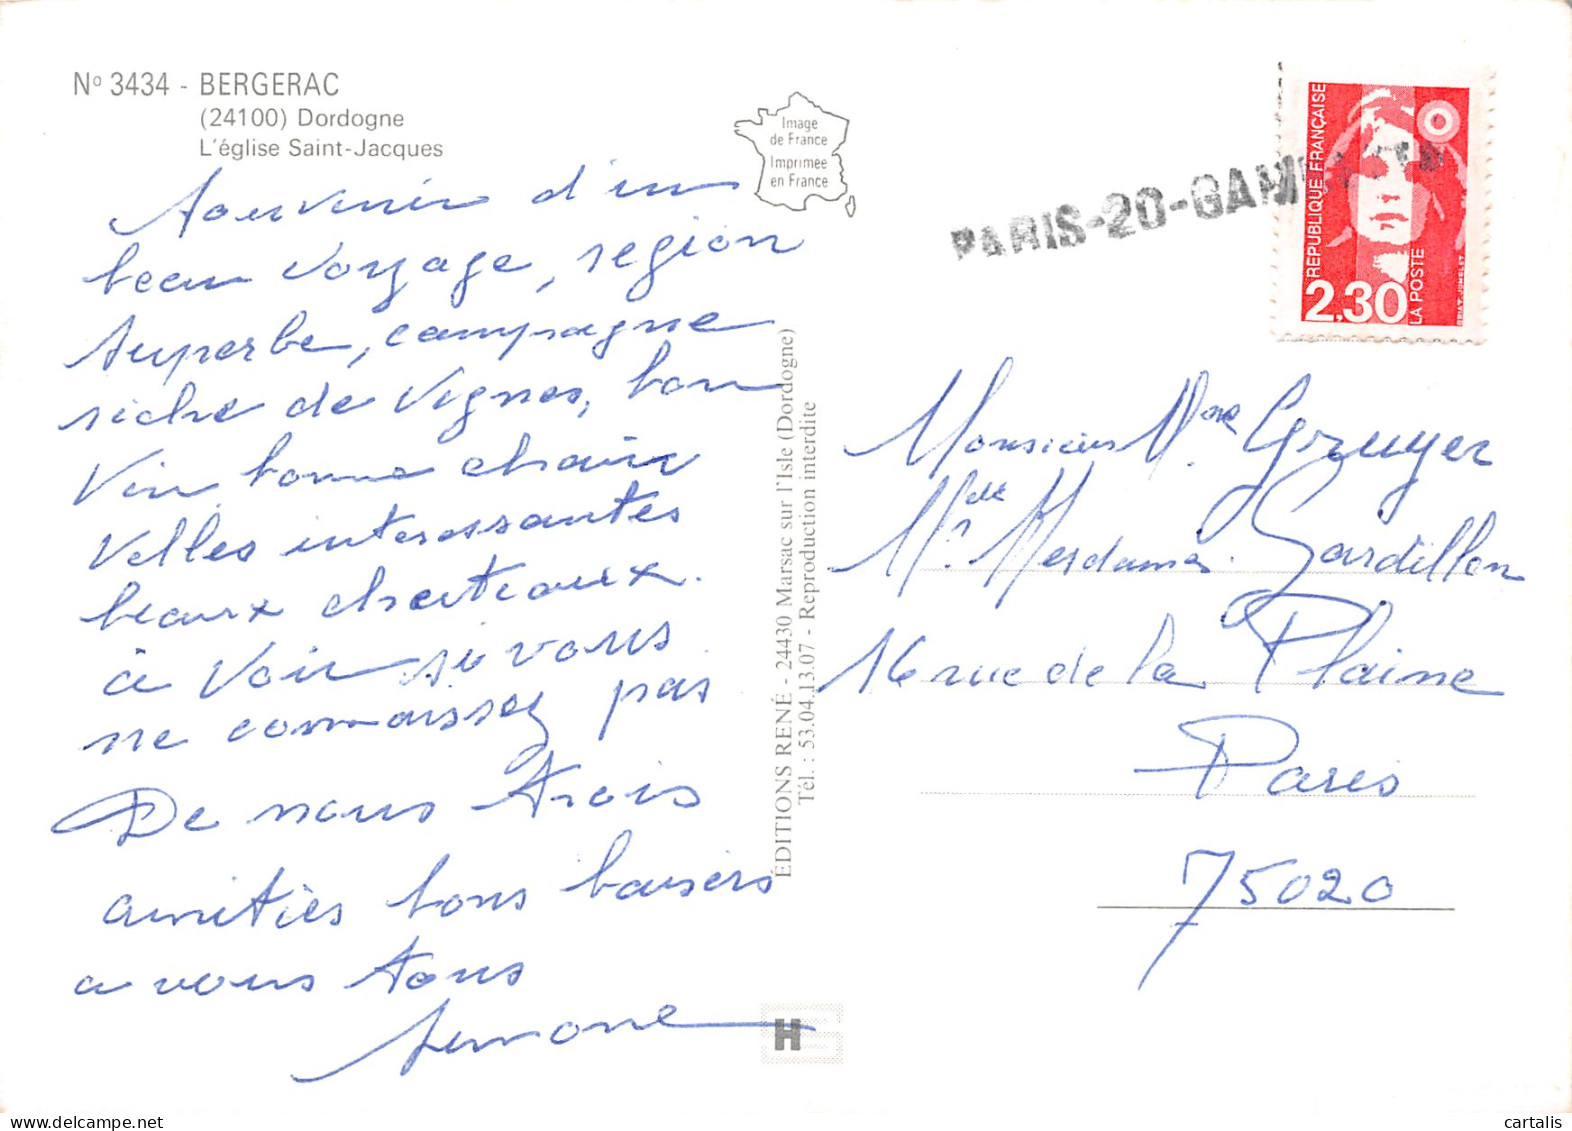 Nº 3434 - BERGERAC
(24100) Dordogne
L'église Saint-Jacques
Souvenir d'un
beau voyage, région
superbe, campagne
riche de vignes, bon
vin, bonne chair
velles interessantes
beaux chateaux.
à voir si vous
ne connaissez pas
De nous trois
amitiés bons baisers
a vous tous
Simone
Image
de France
Imprimée
en France
ÉDITIONS RENÉ - 24430 Marsac sur l'Isle (Dordogne)
Tél. : 53.04.13.07 - Reproduction interdite
H
PARIS-20-GAMBETTA
REPUBLIQUE FRANÇAISE
2,30
LA POSTE
BRIAT. JUMELET
Monsieur Mme Gruyer
Melle Mesdames Gardillon
16 rue de la Plaine
Paris
75020
cartalis